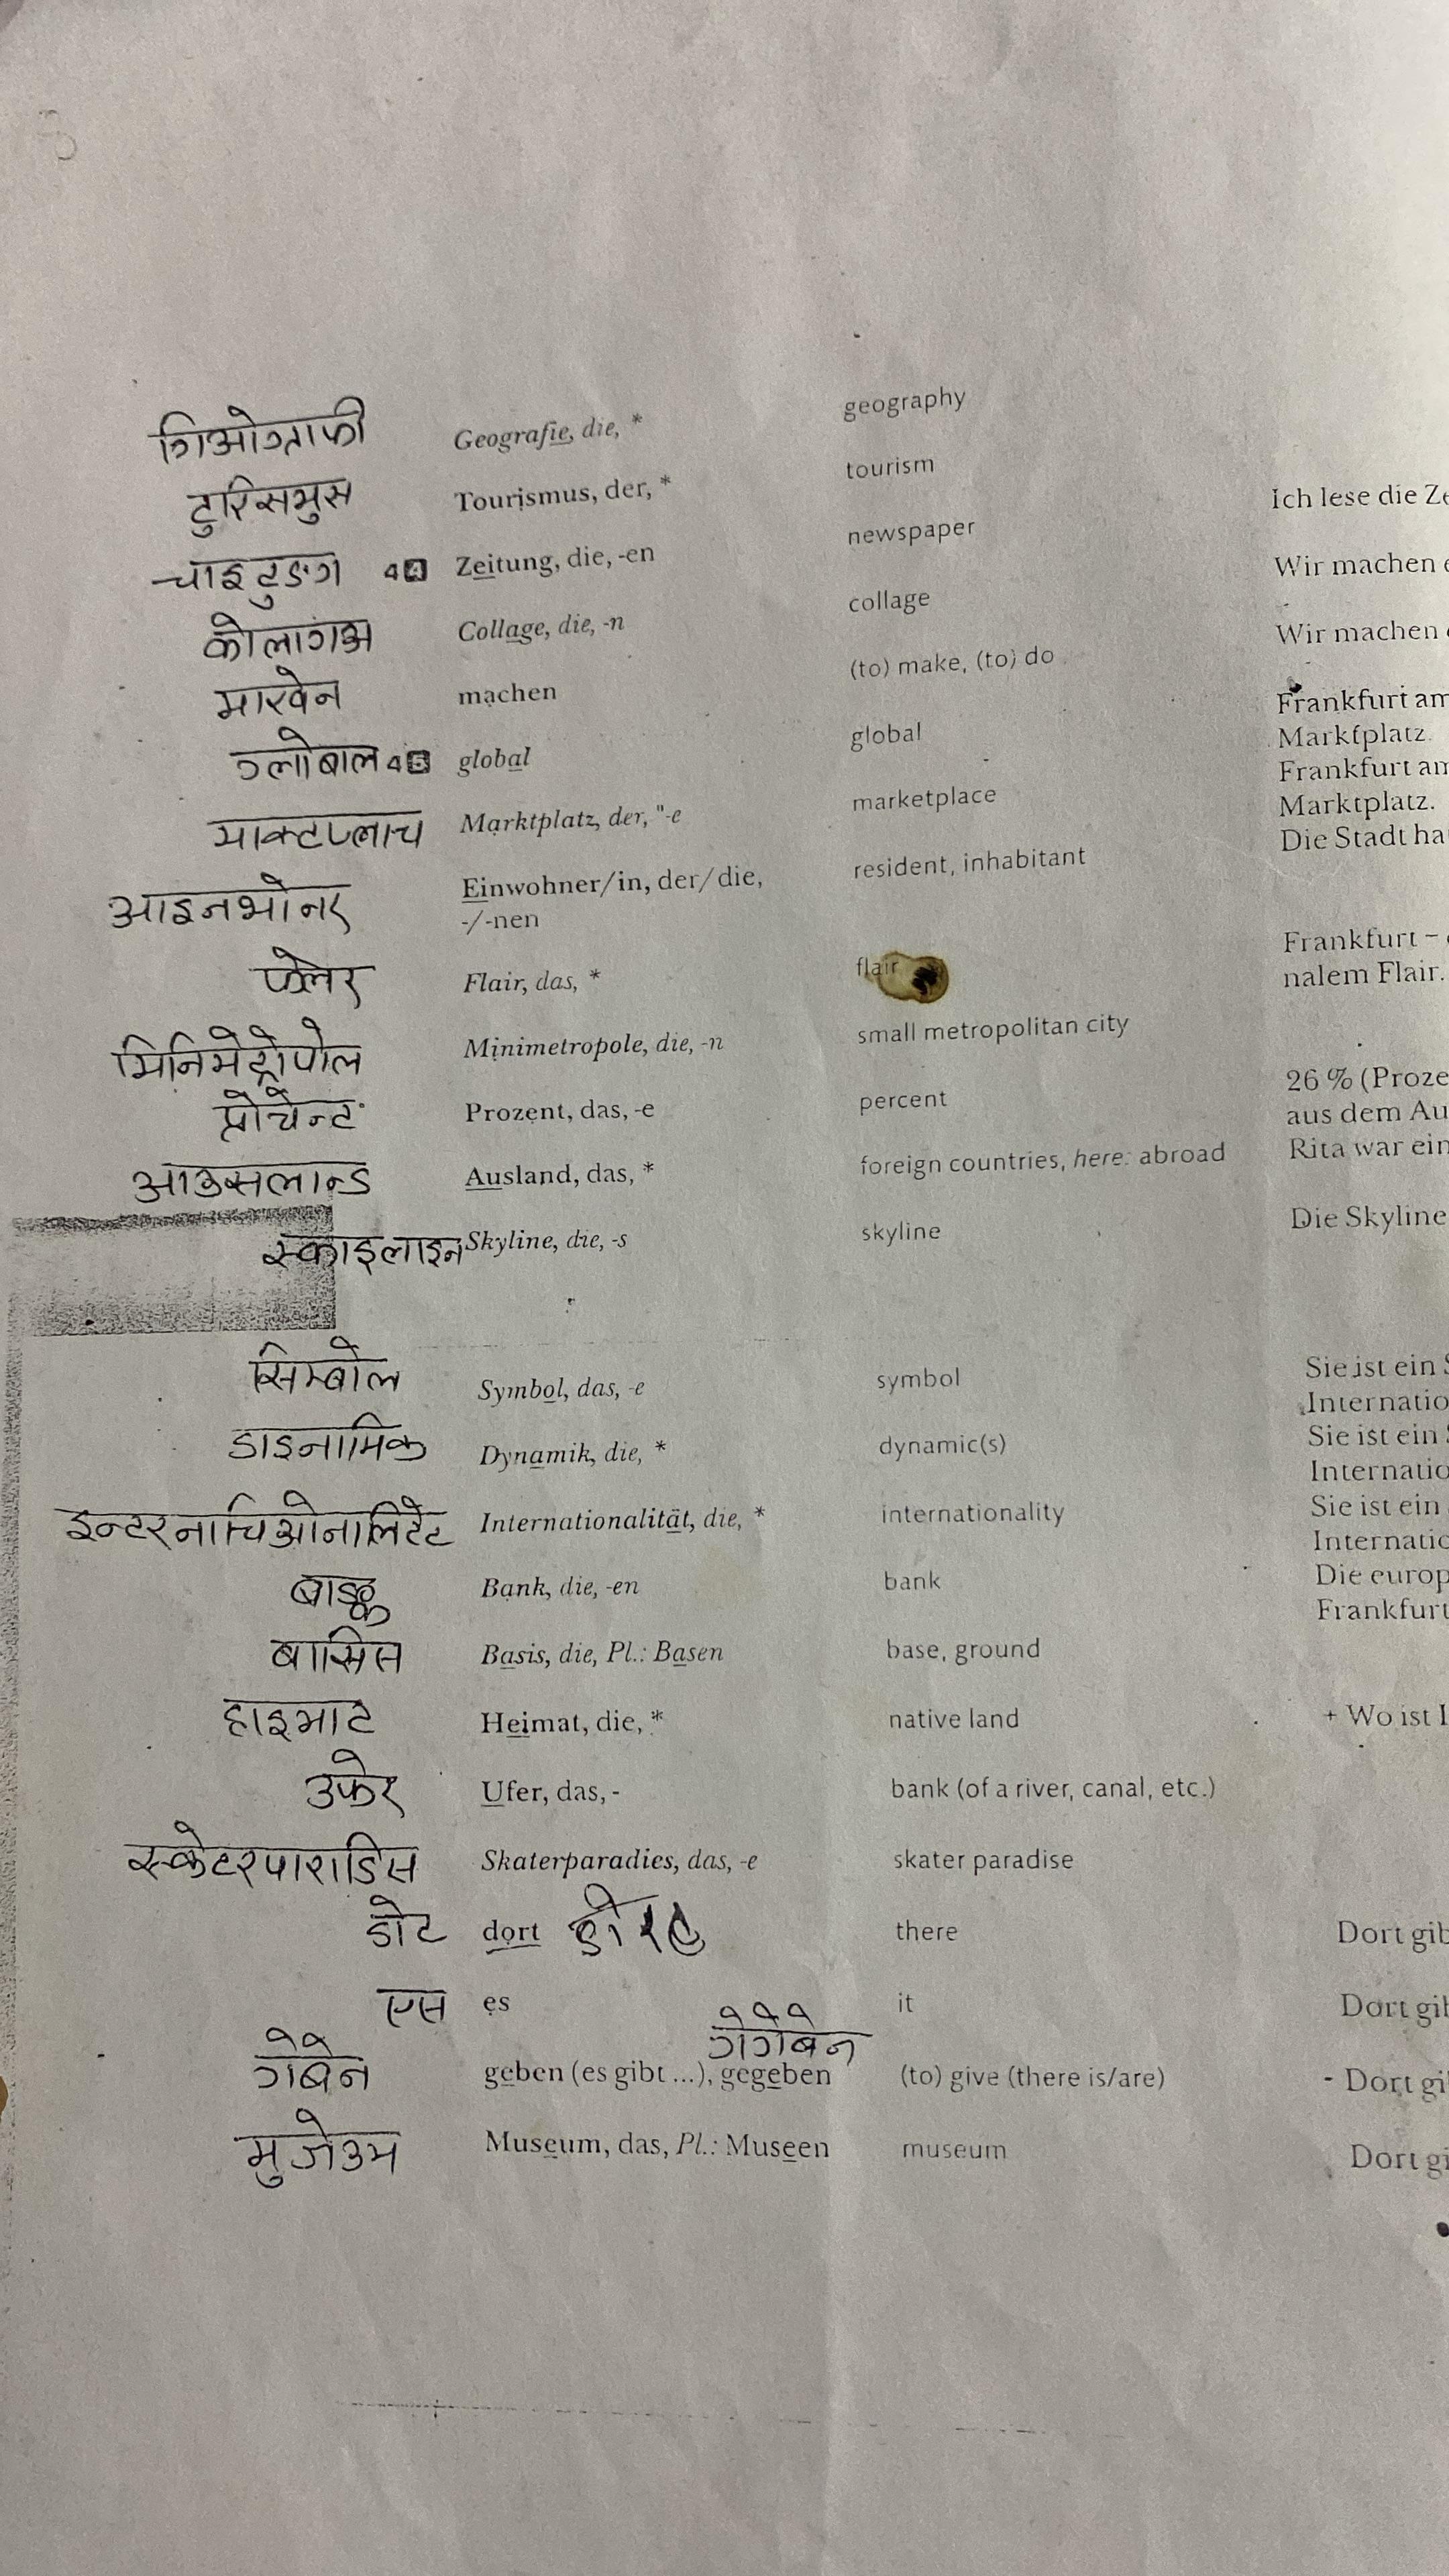 गिओग्राफी Geografie, die, * geography
टुरिसमुस Tourismus, der, * tourism
चाइटुङग 4A Zeitung, die, -en newspaper Ich lese die Ze
कोलागअ Collage, die, -n collage Wir machen e
माखेन machen (to) make, (to) do Wir machen
ग्लोबाल 4B global global Frankfurt am
Marktplatz.
माक्टप्लाच Marktplatz, der, "-e marketplace Frankfurt am
Marktplatz.
आइनभोनर Einwohner/in, der/die, resident, inhabitant Die Stadt ha
-/-nen
फ्लेर Flair, das, * flair Frankfurt –
nalem Flair.
मिनिमेट्रोपोल Minimetropole, die, -n small metropolitan city
प्रोचेन्ट Prozent, das, -e percent 26 % (Proze
aus dem Au
आउसलान्ड Ausland, das, * foreign countries, here: abroad Rita war ein
स्काइलाइन Skyline, die, -s skyline Die Skyline
सिम्बोल Symbol, das, -e symbol Sie ist ein S
Internatio
डाइनामिक Dynamik, die, * dynamic(s) Sie ist ein
Internatio
इन्टरनाचिओनालिटेट Internationalität, die, * internationality Sie ist ein
Internatio
बाङ्क Bank, die, -en bank Die europ
Frankfurt
बासिस Basis, die, Pl.: Basen base, ground
हाइमाट Heimat, die, * native land + Wo ist I
उफेर Ufer, das, - bank (of a river, canal, etc.)
स्केटरपाराडिस Skaterparadies, das, -e skater paradise
डोट dort there Dort gib
एस es it Dort gib
गेगेबेन
गेबेन geben (es gibt ...), gegeben (to) give (there is/are) - Dort gi
मुजेउम Museum, das, Pl.: Museen museum Dort gi